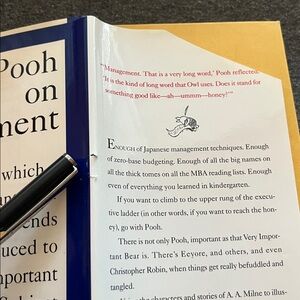 Pooh
on
ment
which
ends
uced to
mportant
"'Management. That is a very long word,' Pooh reflected.
'It is the kind of long word that Owl uses. Does it stand for
something good like—ah—ummm—honey?'"
ENOUGH of Japanese management techniques. Enough
of zero-base budgeting. Enough of all the big names on
all the thick tomes on all the MBA reading lists. Enough
even of everything you learned in kindergarten.
If you want to climb to the upper rung of the exec-
utive ladder (in other words, if you want to reach the hon-
ey), go with Pooh.
There is not only Pooh, important as that Very Impor-
tant Bear is. There's Eeyore, and others, and even
Christopher Robin, when things get really befuddled and
tangled.
the characters and stories of A. A. Milne to illus-